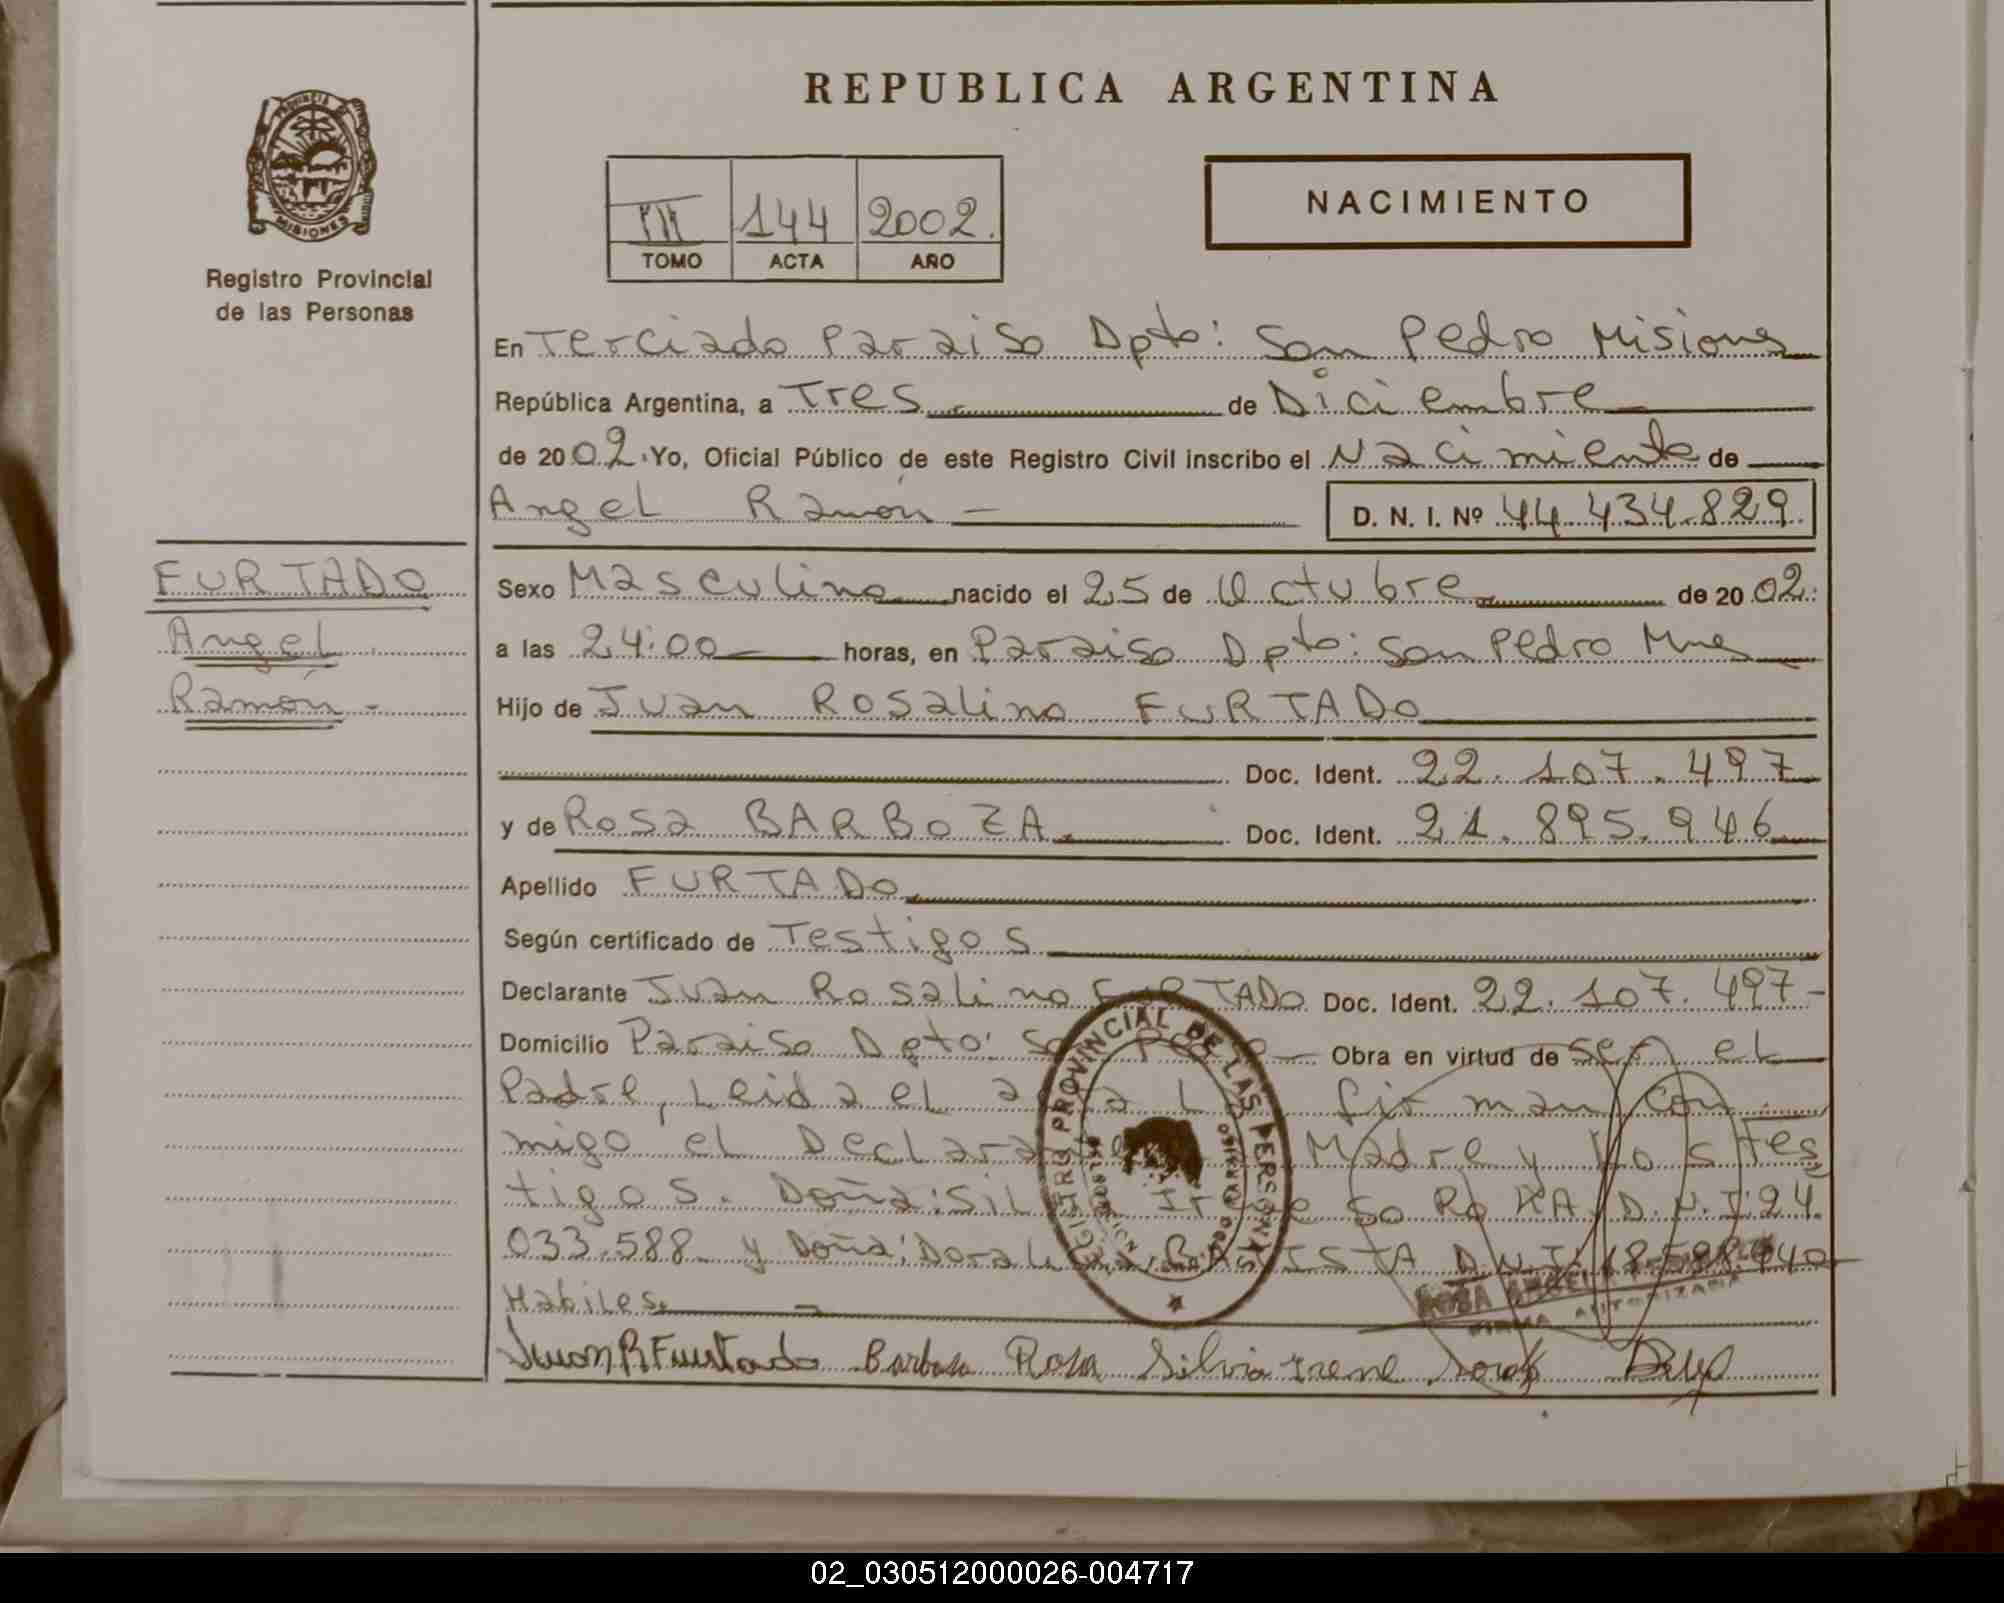 REPUBLICA ARGENTINA
PROVINCIA DE MISIONES
Registro Provincial
de las Personas
III 144 2002.
TOMO ACTA AÑO
NACIMIENTO
En Terciado Paraiso Dpto: San Pedro Misiones
República Argentina, a Tres de Diciembre
de 2002. Yo, Oficial Público de este Registro Civil inscribo el Nacimiento de
Angel Ramón D. N. I. Nº 44.434.829.
FURTADO
Angel
Ramón -
Sexo Masculino nacido el 25 de Octubre de 2002.
a las 24:00 horas, en Paraiso Dpto: San Pedro Mnes
Hijo de Juan Rosalino FURTADO
Doc. Ident. 22.107.497
y de Rosa BARBOZA. Doc. Ident. 21.895.946
Apellido FURTADO
Según certificado de Testigos
Declarante Juan Rosalino FURTADO Doc. Ident. 22.107.497-
Domicilio Paraiso Dpto: San Pedro Obra en virtud de ser el
Padre, Leida el acta La firman con
migo el Declarante Madre y los Tes
tigos. Doña: Silvia Irene SoRoKA D.N.I. 24.
033.588 y Doña: D.N.I. 18.588.940
Habiles.
REGISTRO PROVINCIAL DE LAS PERSONAS
ROSA
FIRMA AUTORIZADA
Juan R Furtado Barboza Rosa Silvia Irene
02_030512000026-004717